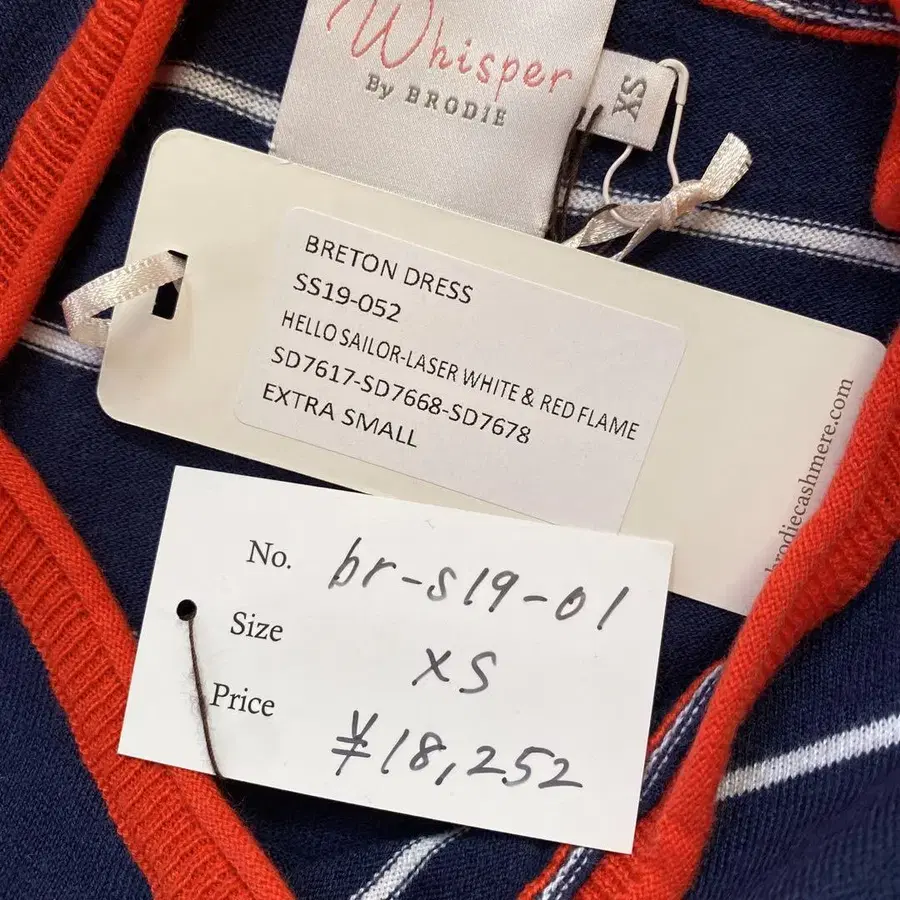 Whisper
By BRODIE
XS
BRETON DRESS
SS19-052
HELLO SAILOR-LASER WHITE & RED FLAME
SD7617-SD7668-SD7678
EXTRA SMALL
brodiecashmere.com
No. br-s19-01
Size XS
Price ¥18,252